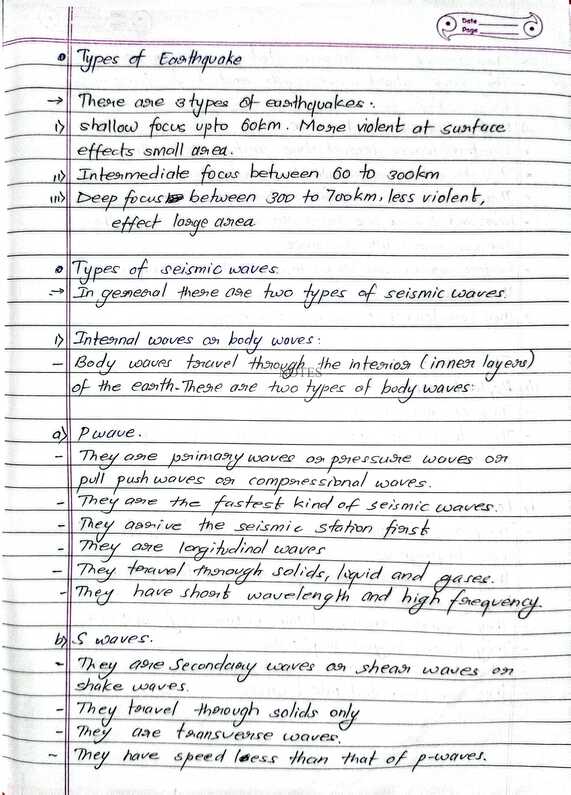 Date
Page
Types of Earthquake
→ There are 3 types of earthquakes.
i) shallow focus upto 60km. More violent at surface
effects small area.
ii) Intermediate focus between 60 to 300km
iii) Deep focus between 300 to 700km, less violent,
effect large area
Types of seismic waves.
→ In general there are two types of seismic waves.
i) Internal waves or body waves:
- Body waves travel through the interior (inner layers)
NOTES
of the earth. There are two types of body waves:
a) P wave.
- They are primary waves or pressure waves or
pull push waves or compressional waves.
- They are the fastest kind of seismic waves.
- They arrive the seismic station first
- They are longitudinal waves
- They travel through solids, liquid and gases.
- They have short wavelength and high frequency.
b) S waves.
- They are Secondary waves or shear waves or
shake waves.
- They travel through solids only
- They are transverse waves.
- They have speed less than that of p-waves.